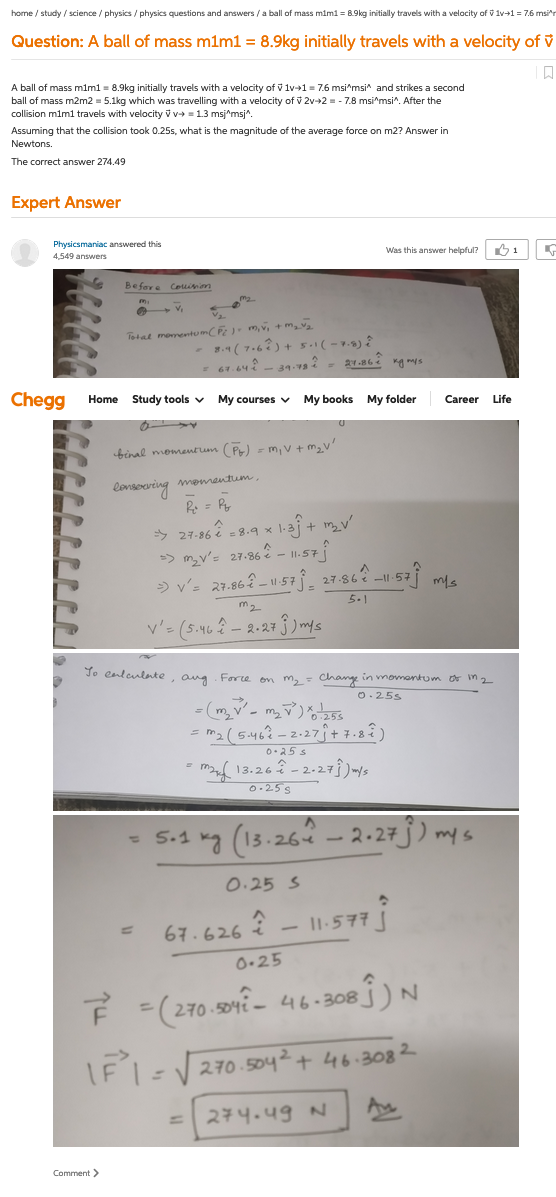 home / study / science / physics / physics questions and answers / a ball of mass m1m1 = 8.9kg initially travels with a velocity of v⃗ 1v→1 = 7.6 msi^m
Question: A ball of mass m1m1 = 8.9kg initially travels with a velocity of v⃗
A ball of mass m1m1 = 8.9kg initially travels with a velocity of v⃗ 1v→1 = 7.6 msi^msi^ and strikes a second
ball of mass m2m2 = 5.1kg which was travelling with a velocity of v⃗ 2v→2 = - 7.8 msi^msi^. After the
collision m1m1 travels with velocity v⃗ v→ = 1.3 msj^msj^.
Assuming that the collision took 0.25s, what is the magnitude of the average force on m2? Answer in
Newtons.
The correct answer 274.49
Expert Answer
Physicsmaniac answered this
4,549 answers
Was this answer helpful? 1
Before Collision
m₁ v̄₁ v̄₂ m₂
Total momentum (P̄ᵢ) = m₁v̄₁ + m₂v̄₂
= 8.9(7.6î) + 5.1(-7.8)î
= 67.64î - 39.78î = 27.86î kg m/s
Chegg Home Study tools My courses My books My folder Career Life
final momentum (P̄f) = m₁v + m₂v'
conserving momentum,
P̄i = P̄f
⇒ 27.86î = 8.9 × 1.3ĵ + m₂v'
⇒ m₂v' = 27.86î - 11.57ĵ
⇒ v' = 27.86î - 11.57ĵ / m₂ = 27.86î - 11.57ĵ / 5.1 m/s
v' = (5.46î - 2.27ĵ) m/s
To calculate, avg. Force on m₂ = Change in momentum of m₂ / 0.25s
= (m₂v⃗' - m₂v⃗) × 1/0.25s
= m₂(5.46î - 2.27ĵ + 7.8î) / 0.25s
= m₂ (13.26î - 2.27ĵ) m/s / 0.25s
= 5.1 kg (13.26î - 2.27ĵ) m/s / 0.25 s
= 67.626î - 11.577ĵ / 0.25
F⃗ = (270.504î - 46.308ĵ) N
|F⃗| = √270.504² + 46.308²
= 274.49 N Ans
Comment